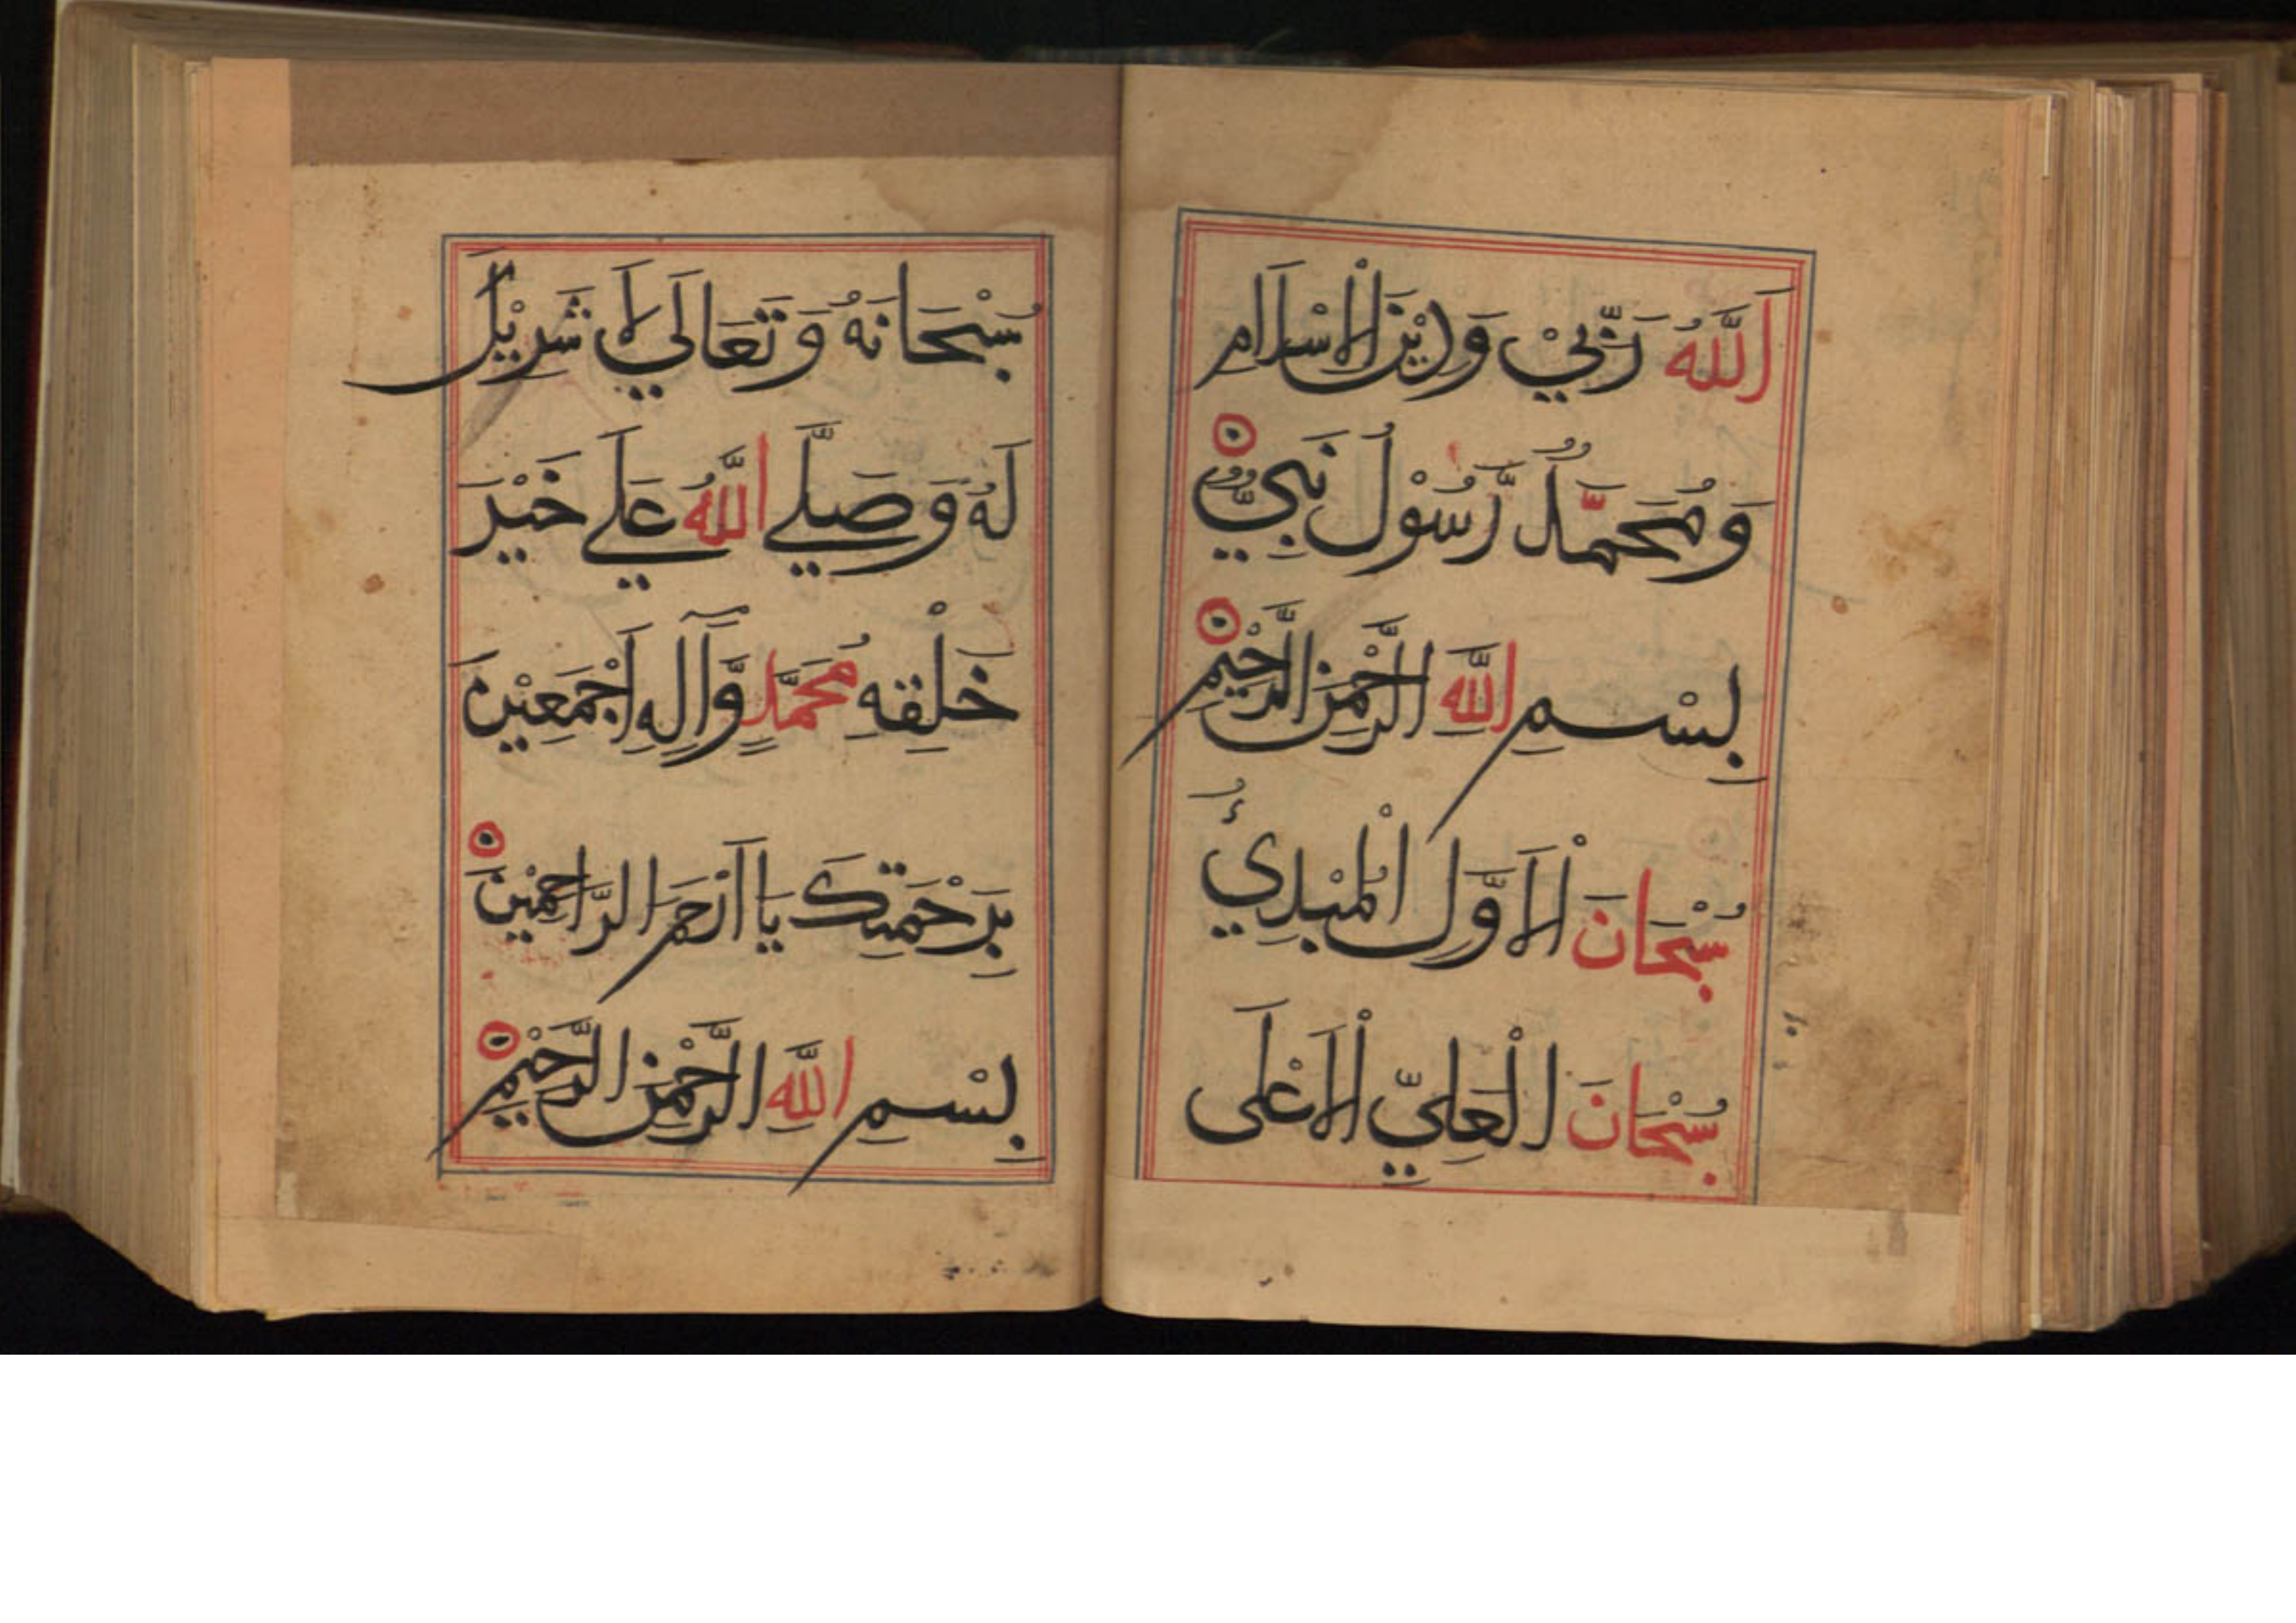 اَللّٰهُ رَبِّيْ وَدِيْنِ الْاِسْلَام
وَمُحَمَّدٌ رَّسُوْلُ نَبِيٌّ
بِسْمِ اللّٰهِ الرَّحْمٰنِ الرَّحِيْمِ
سُبْحَانَ الْاَوَّلِ الْمُبْدِئُ
سُبْحَانَ الْعَلِيِّ الْاَعْلَى
سُبْحَانَهُ وَتَعَالَي لَا شَرِيْكَ
لَهُ وَصَلَّي اللّٰهُ عَلَي خَيْرَ
خَلْقِهِ مُحَمَّدٍ وَّآلِهِ اَجْمَعِيْنَ
بِرَحْمَتِكَ يَا اَرْحَمَ الرَّاحِمِيْنَ
بِسْمِ اللّٰهِ الرَّحْمٰنِ الرَّحِيْمِ